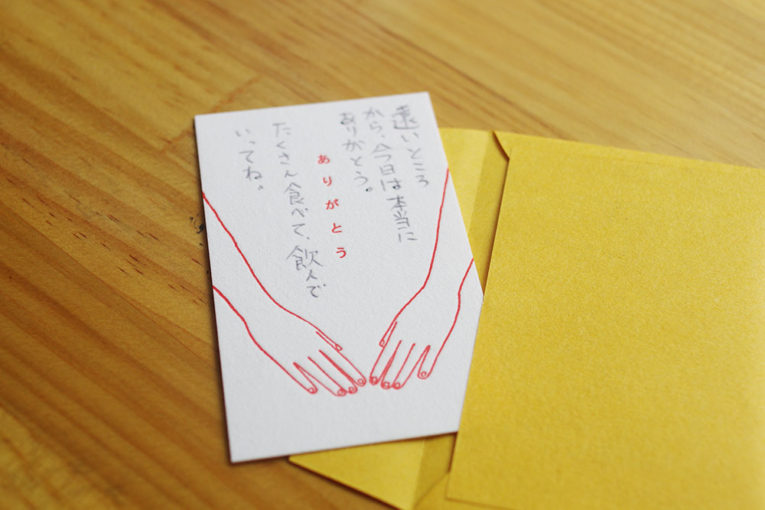 遠いところ
から、今日は本当に
ありがとう。
ありがとう
たくさん食べて、飲んで
いってね。